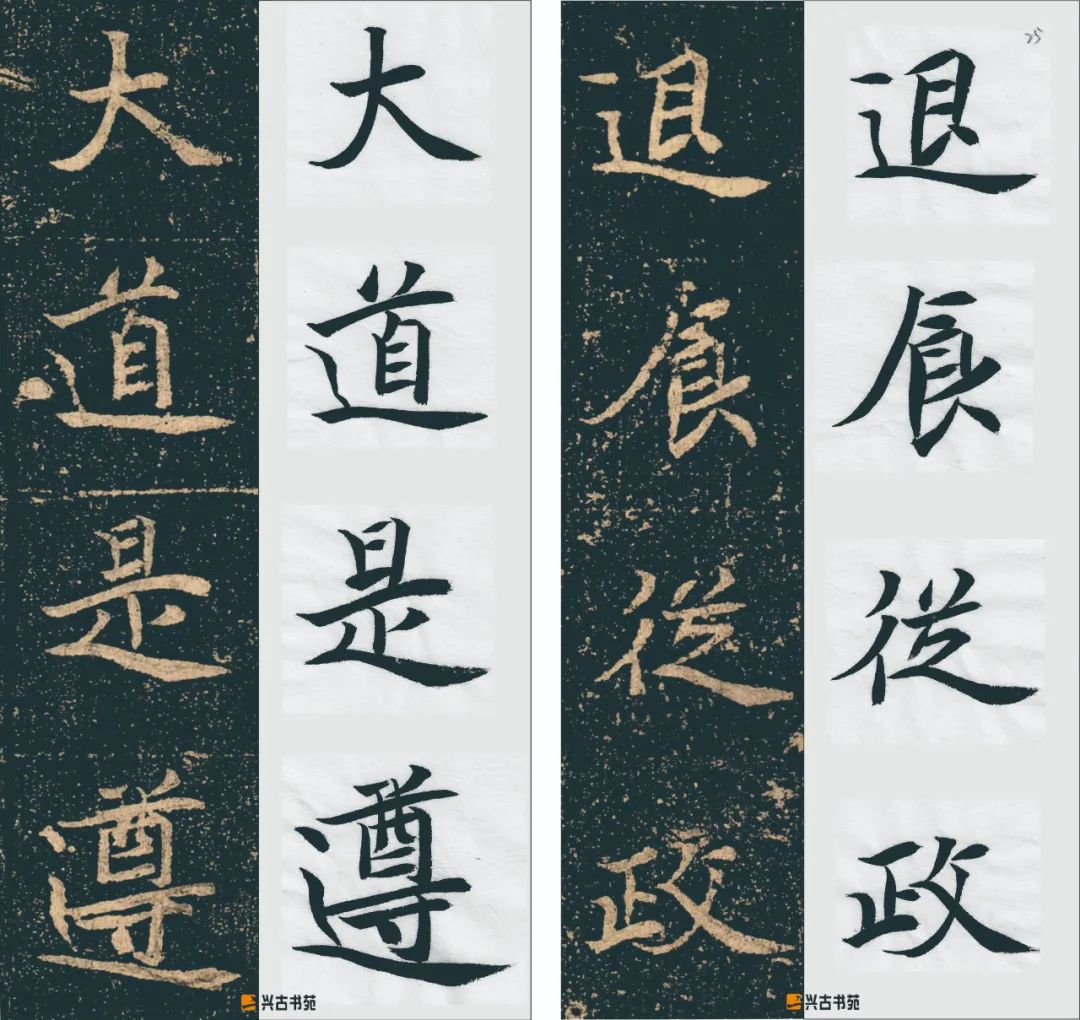 大道是遵
大道是遵
兴古书苑
退食從政
25
退食從政
兴古书苑